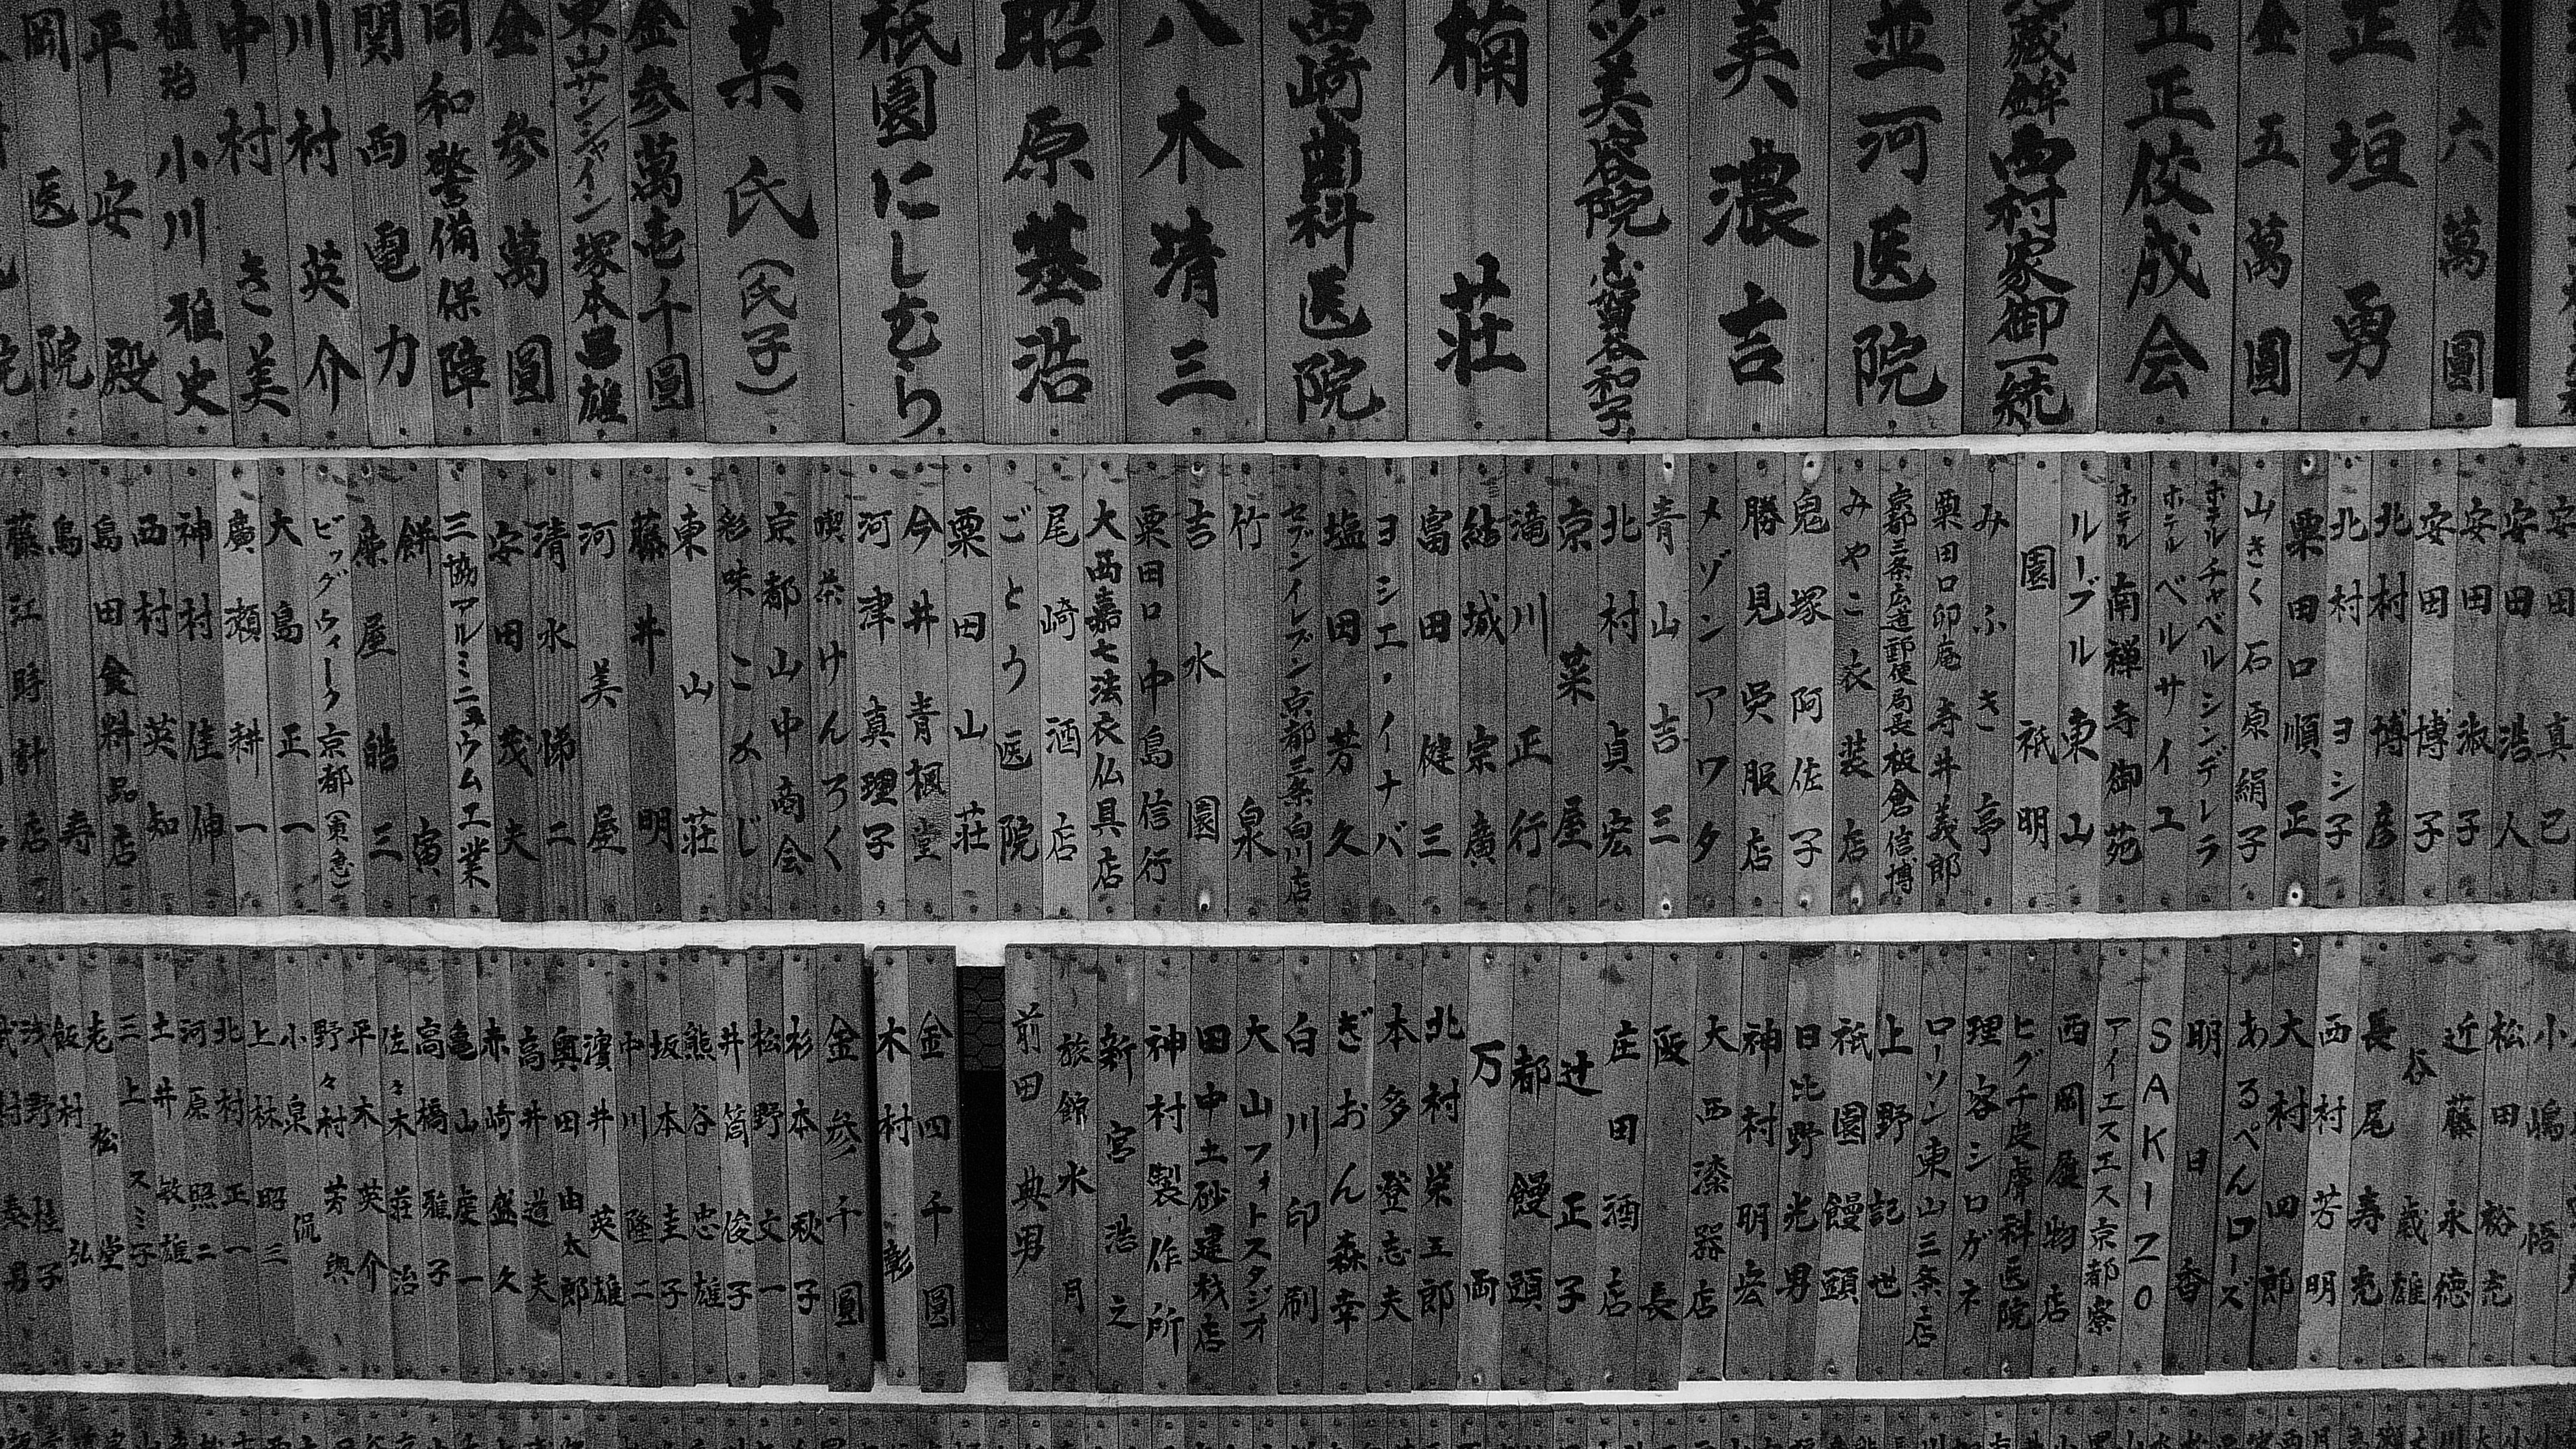 金六萬圓
正垣勇
金五萬圓
立正佼成会
蔵鉾西村家御一統
並河医院
美濃吉
美容院志賀谷和子
楠荘
西崎歯科医院
八木清三
昭原基浩
祇園にしむら
某氏(氏子)
金参萬壱千圓
東山サンシャイン塚本昌雄
金参萬圓
同和警備保障
関西電力
川村英介
中村きさ美
植治小川雅史
平安殿
岡医院
安田真己
安田浩人
安田淑子
安田博子
北村博彦
北村ヨシ子
粟田口順正
山きく石原絹子
ホテルチャペルシンデレラ
ホテルベルサイユ
ホテル南禅寺御苑
ルーブル東山
園祇明
みふき亭
粟田口卯庵寿井義郎
京都三条広道郵便局長板倉信博
みやこ衣装店
鬼塚阿佐子
勝見呉服店
メゾンアワタ
青山吉三
北村貞宏
京菜屋
滝川正行
結城宗廣
富田健三
ヨシエ・イナバ
塩田芳久
セブンイレブン京都三条白川店
竹泉
吉水園
粟田口中島信行
大西嘉七法衣仏具店
尾崎酒店
ごとう医院
粟田山荘
今井青楓堂
河津真理子
喫茶けんろく
京都山中商会
彩味こみじ
東山荘
藤井明
河美屋
清水悌二
安田茂夫
三協アルミニュウム工業
餅寅
廉屋皓三
ビッグウィーク京都(東急)
大島正一
廣瀬耕一
神村佳伸
西村英知
島田食料品店
鳥寿
藤江時計店
小嶋悟
松田裕充
近藤永徳
谷歳雄
長尾寿尭
西村芳明
大村四郎
あるぺんローズ
明日香
SAKIZO
アイエスエス京都寮
西岡履物店
ヒグチ皮膚科医院
理容シロガネ
ローソン東山三条店
上野記世
祇園饅頭
日比野光男
神村明宏
大西漆器店
阪長
庄田酒店
辻正子
都饅頭
万両
北村栄五郎
本多登志夫
ぎおん森幸
白川印刷
大山フォトスタジオ
田中土砂建材店
神村製作所
新宮浩之
旅館水月
前田典男
金四千圓
木村彰
金参千圓
杉本秋子
松野文一
井筒俊子
熊谷忠雄
坂本圭子
中川隆二
濱井英雄
奥田由太郎
高井道夫
赤崎盛久
亀山虔一
高橋雅子
佐々木荘治
平木英介
野々村芳輿
小泉侃
上林昭三
北村正一
河原照二
土井敏雄
三上スミ子
老松堂
飯村弘
浅野桂子